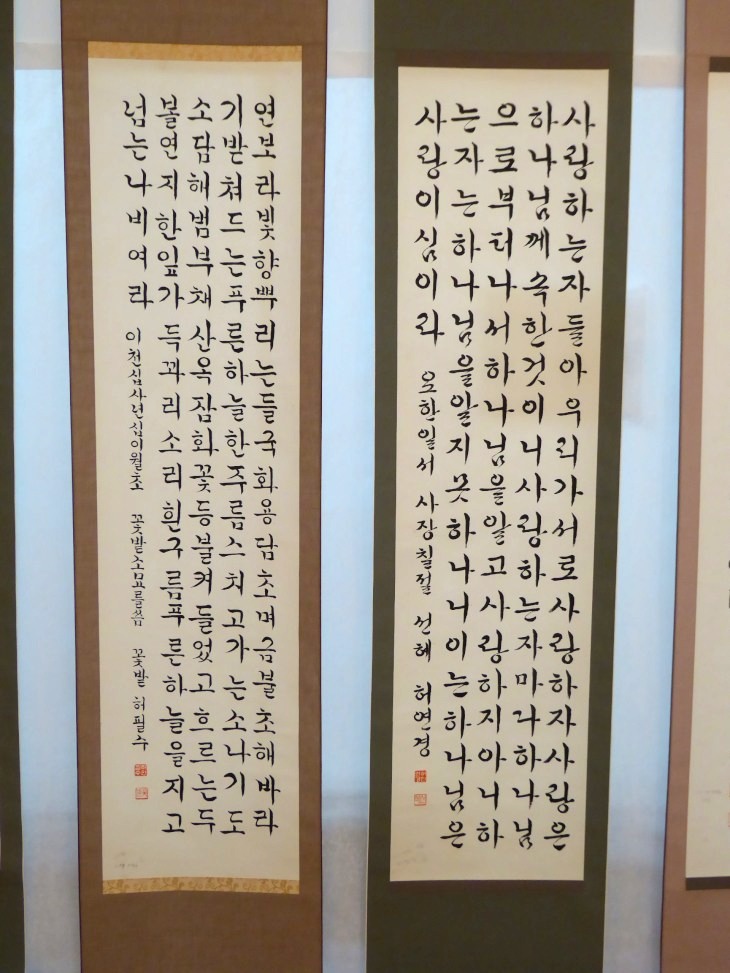 사랑하는자들아우리가서로사랑하자사랑은
하나님께속한것이니사랑하는자마다하나님
으로부터나서하나님을알고사랑하지아니하
는자는하나님을알지못하나니이는하나님은
사랑이심이라 요한일서 사장칠절 선혜 허연경
연보라빛향뿌리는들국화용담초며금불초해바라
기받쳐드는푸른하늘한주름스치고가는소나기도
소담해범부채산옥잠화꽃등불켜들었고흐르는두
볼연지한잎가득꽈리소리흰구름푸른하늘을지고
넘는나비여라 이천십사년십이월초 꽃밭소묘를씀 꽃밭 허필수